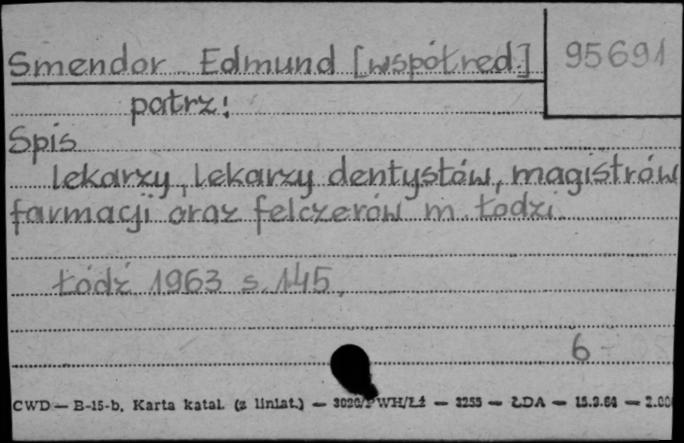 Smendor Edmund [współred.] 95691
patrz:
Spis
lekarzy, lekarzy dentystów, magistrów
farmacji oraz felczerów m. Łodzi.
Łódź 1963 s. 145.
6
CWD — B-15-b, Karta katal. (z liniat.) — 3020/PWH/Łź — 3255 — ŁDA — 15.9.64 — 2.00